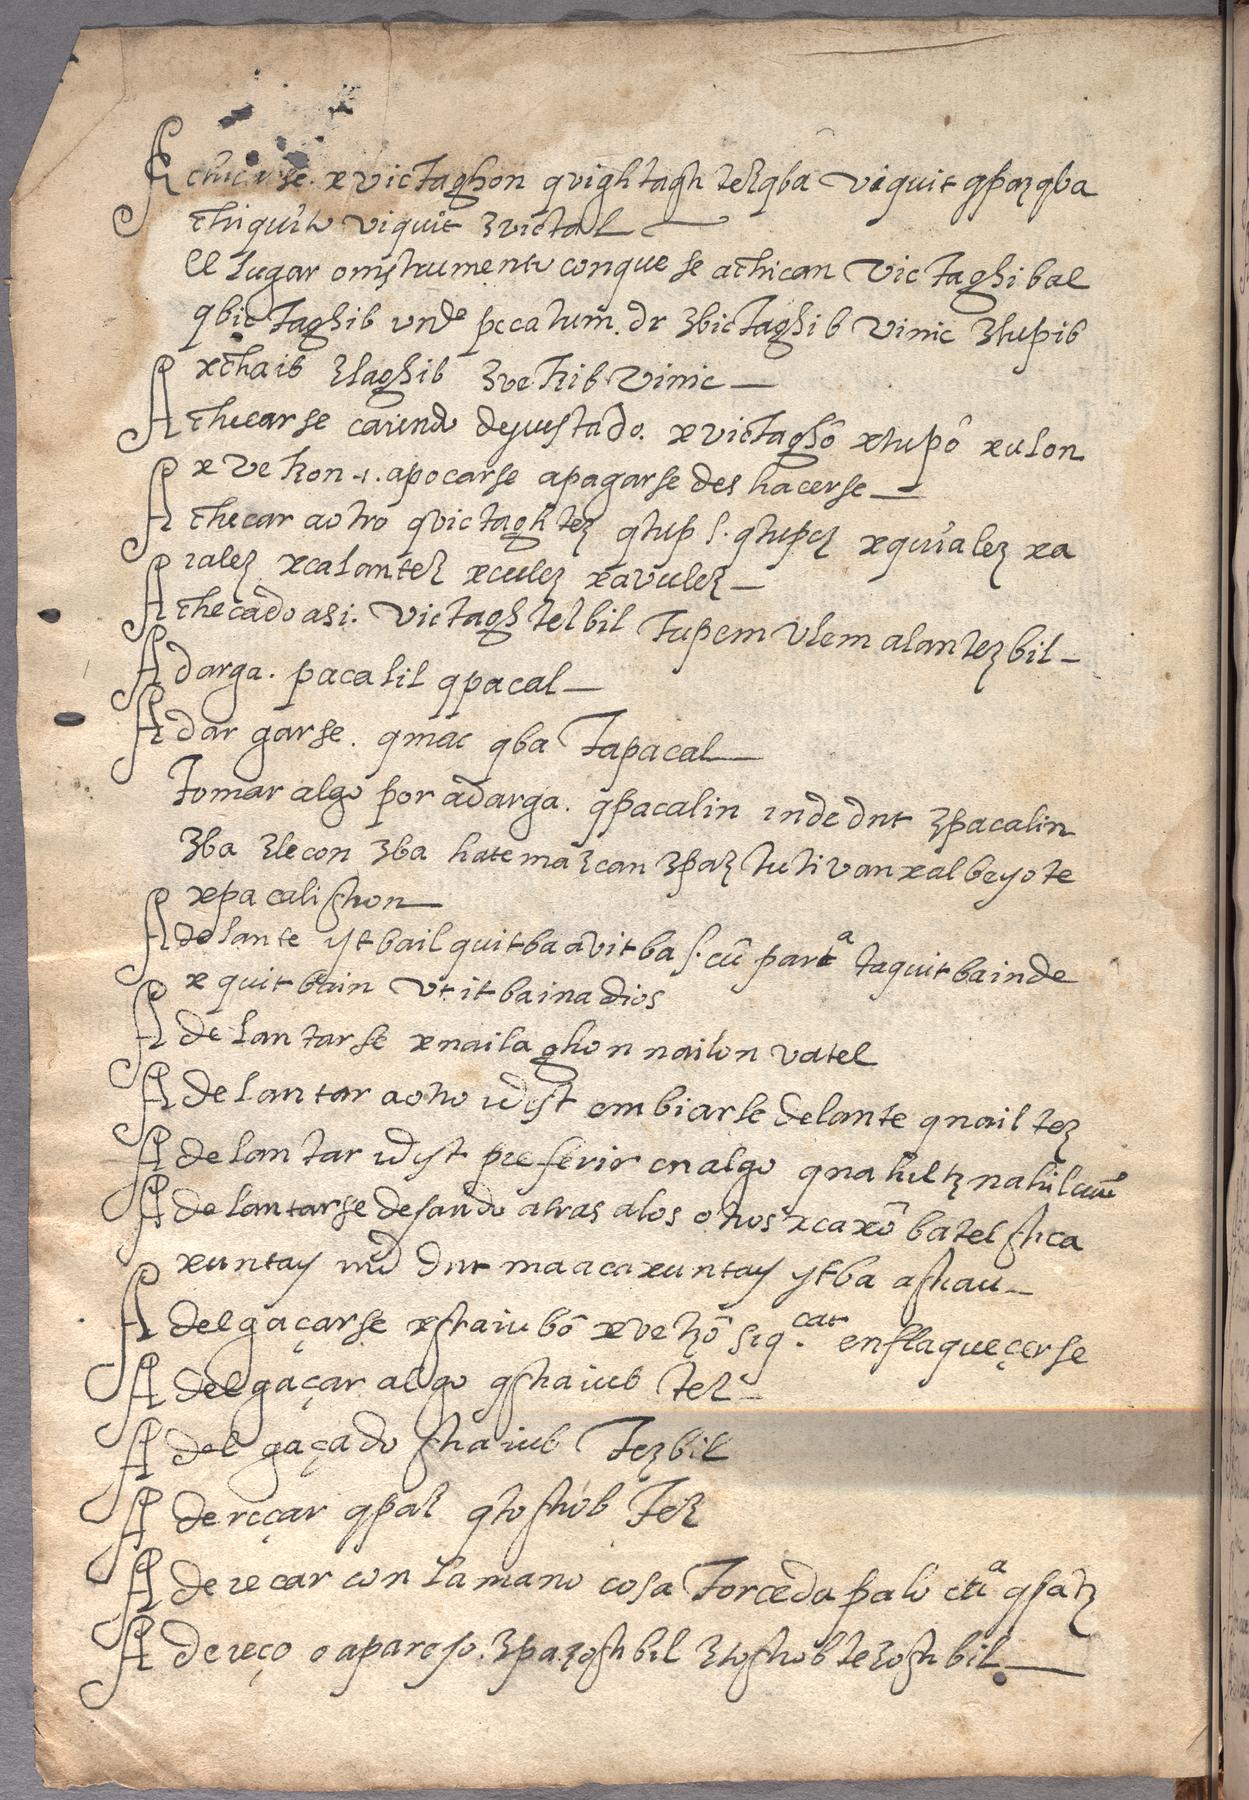 Achicarse. xvictaghon qvightagh tezqba viquit qpazqba
chiquitu viquit zvictal
el lugar omstrumentu conque se achican victaghibal
qbictaghib vnde peccatum. dr zbictaghib vinic ztupib
xchaib zlaghib zvekib vinic
Achicarse caiendo de su estado. xvictaghô xtupô xulon
xvekon .i. apocarse apagarse des hacerse
Achicar aotro qvictaghtez qtup l. qtupez xquialez xa
ialez xcalantez xculez xavulez
Achicado asi. victaghtezbil tupem vlem alantezbil
Adarga. pacalil qpacal
Adargarse. qmac qba tapacal
tomar algo por adarga. qpacalin inde dnt zpacalin
zba zlecon zba hatemazcan zpaz tutivanxalbeyote
xpacalishon
Adelante ytbail quitba avitba l. cû partᵃ taquitbainde
xquitbain vt itbaina dios
Adelantarse xnailaghon nailon vatel
Adelantar aotro id est embiarle delante qnailtez
Adelantar id est preferir en algo qnahiltz nahilavê
Adelantarse dejando atras alos otros xcaxô batel shca
xuntay vnde dnt maacaxuntay ytba ashau
Adelgaçarse xshaiubô xvekô sigcat. enflaqueçerse
Adelgaçar algo qshaiub tez
Adelgaçado shaiub tezbil
Adereçar qpaz qtoshob tez
Adereçar con la mano cosa torceda palo etcᵃ qsatz
Adereço o aparejo. zpazoshbil ztoshobtezoshbil